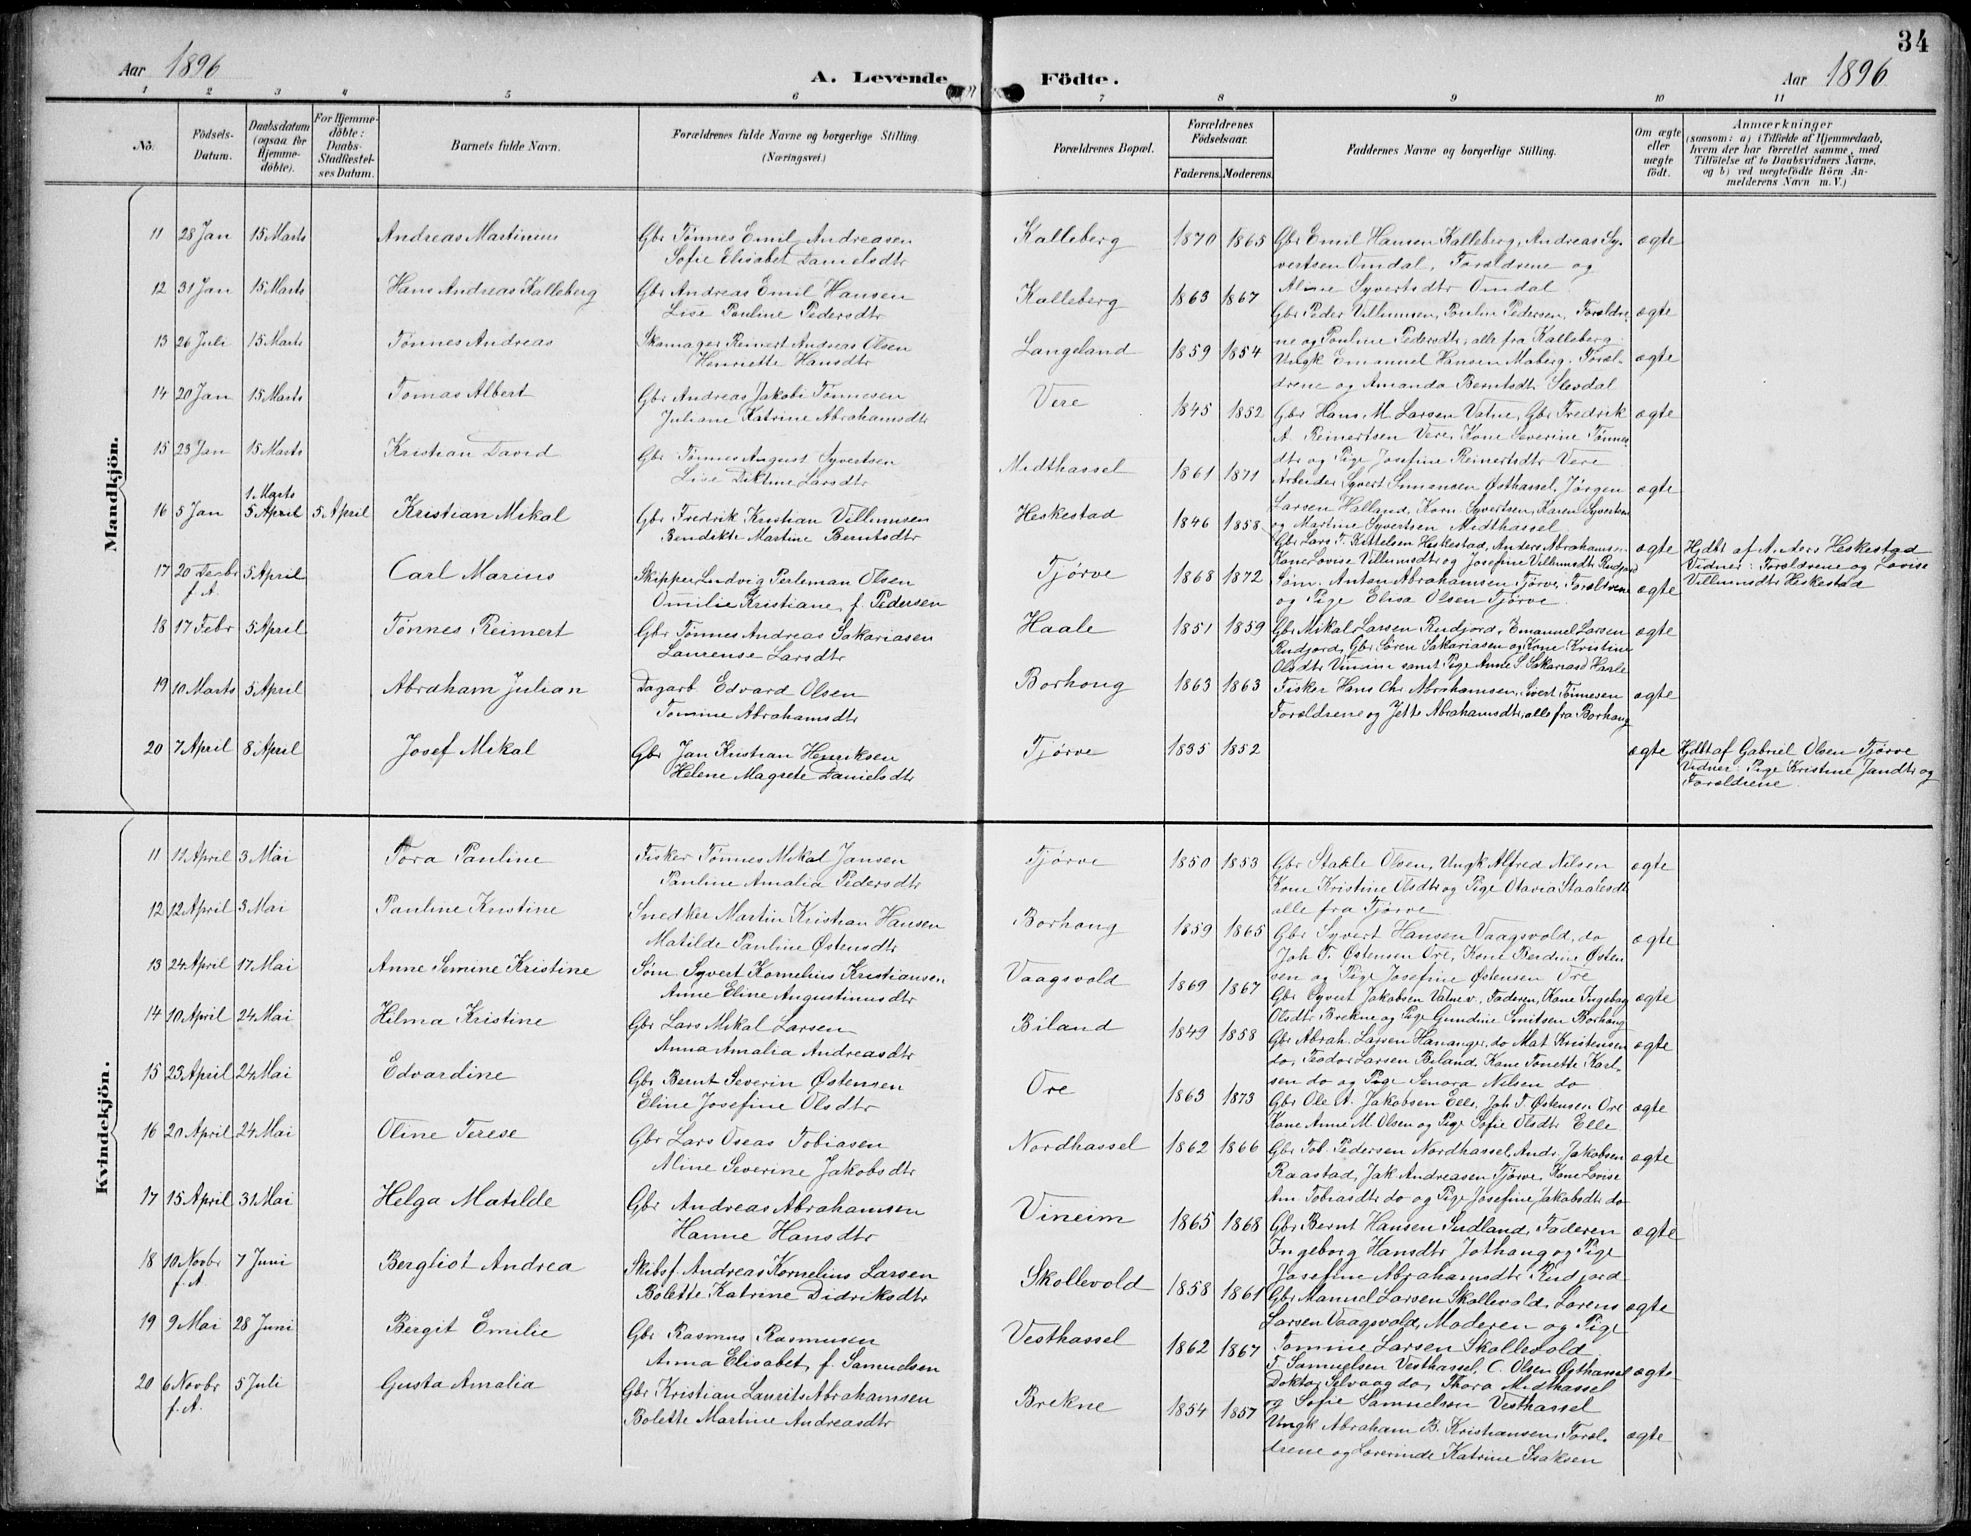 34
Aar 1896
A. Levende Födte.
Aar 1896
1 2 3 4 5 6 7 8 9 10 11
No.
Födsels-Datum.
Daabsdatum (ogsaa for Hjemme-döbte).
For Hjemme-döbte: Daabs-Stadfæstel-ses Datum.
Barnets fulde Navn.
Forældrenes fulde Navne og borgerlige Stilling. (Næringsvei.)
Forældrenes Bopæl.
Forældrenes Födselsaar.
Faderens. Moderens.
Faddernes Navne og borgerlige Stilling.
Om ægte eller uægte födt.
Anmærkninger
(saasom: a) i Tilfælde af Hjemmedaab,
hvem der har forrettet samme, med
Tilföielse af to Daabsvidners Navne,
og b) ved uægtefödte Börn An-
melderens Navn m.V.)
Mandkjön.
11 28 Jan 15 Marts Andreas Martinius Gbr Tønnes Emil Andreasen Kalleberg 1870 1865 Gbr Emil Hansen Kalleberg, Andreas Sy- ægte
Sofie Elisabet Danielsdtr vertsen Omdal, Forældrene og
Aline Syvertsdtr Omdal
12 31 Jan 15 Marts Hans Andreas Kalleberg Gbr Andreas Emil Hansen Kalleberg 1863 1867 Gbr Peder Villumsen, Poulin Pedersen, Forældre ægte
Lise Pauline Pedersdtr ne og Pouline Pedersdtr, alle fra Kalleberg
13 26 Juli 15 Marts Tønnes Andreas Skomager Reinert Andreas Olsen Langeland 1859 1854 Ungk Emanuel Hansen Maberg, Foræl- ægte
Henriette Hansdtr drene og Amanda Berntsdtr Slevdal
14 20 Jan 15 Marts Tomas Albert Gbr Andreas Jakobi Tønnesen Vere 1845 1852 Gbr Hans M. Larsen Vatne, Gbr Fredrik ægte
Juliane Katrine Abrahamsdtr A. Reinertsen Vere, Kone Severine Tønnes
dtr og Pige Josefine Reinertsdtr Vere
15 23 Jan 15 Marts Kristian David Gbr Tønnes August Syvertsen Midthassel 1861 1871 Arbeider Syvert Simonsen Østhassel, Jørgen ægte
Lise Diktine Larsdtr Larsen Halland, Korn. Syvertsen, Karen Syvertsen
og Martine Syvertsen Midthassel
16 5 Jan 1 Marts 5 April 5 April Kristian Mikal Gbr Fredrik Kristian Villumsen Heskestad 1846 1858 Gbr Lars T. Kittelsen Heskestad, Anders Abrahamsen ægte Hjdbt af Anders Heskestad
Bendikte Martine Berntsdtr Kone Lovise Villumsdtr og Josefine Villumsdtr Rudjord Vidner: Forældrene og Lovise
Villumsdtr Heskestad
17 20 Decbr f.A 5 April Carl Marius Skipper Ludvig Perleman Olsen Tjørve 1868 1872 Søm. Anton Abrahamsen Tjørve, Forældrene ægte
Omilie Kristiane, f. Pedersen og Pige Elisa Olsen Tjørve
18 17 Febr 5 April Tønnes Reinert Gbr Tønnes Andreas Sakariasen Haale 1851 1859 Gbr Mikal Larsen Rudjord, Emanuel Larsen ægte
Laurense Larsdtr Rudjord, Gbr Søren Sakariasen og Kone Kristine
Olsdtr Vineim samt Pige Anne S. Sakariasd Haale
19 10 Marts 5 April Abraham Julian Dagarb Edvard Olsen Borhoug 1863 1863 Fisker Hans Chr Abrahamsen, Sivert Tønnesen ægte
Tomine Abrahamsdtr Forældrene og Jette Abrahamsdtr, alle fra Borhoug
20 7 April 8 April Josef Mikal Gbr Jan Kristian Henriksen Tjørve 1835 1852 ægte Hjdbt af Gabriel Olsen Tjørve
Helene Magrete Danielsdtr Vidner: Pige Kristine Jandtr og
Forældrene
Kvindekjön.
11 11 April 3 Mai Tora Pauline Fisker Tønnes Mikal Jansen Tjørve 1850 1853 Gbr Stakle Olsen, Ungk Alfred Nilsen ægte
Pauline Amalia Pedersdtr Kone Kristine Olsdtr og Pige Otavia Staalesdtr
alle fra Tjørve
12 12 April 3 Mai Pauline Kristine Snedker Martin Kristian Hansen Borhoug 1859 1865 Gbr Syvert Hansen Vaagsvold, do ægte
Matilde Pauline Østensdtr Joh T. Østensen Ore, Kone Berdine Østen
sen og Pige Josefine Østensen Ore
13 24 April 17 Mai Anne Semine Kristine Søm Syvert Kornelius Kristiansen Vaagsvold 1869 1867 Gbr Syvert Jakobsen Vatne v., Faderen, Kone Ingeborg ægte
Anne Eline Augustinusdtr Olsdtr Brekne og Pige Gundine Smitsen Borhoug
14 10 April 24 Mai Hilma Kristine Gbr Lars Mikal Larsen Biland 1849 1858 Gbr Abrah. Larsen Hananger, do Mat Kristensen ægte
Anna Amalia Andreasdtr do, Teodor Larsen Biland, Kone Tonette Karl-
sen do og Pige Senora Nilsen do
15 23 April 24 Mai Edvardine Gbr Bernt Severin Østensen Ore 1863 1873 Gbr Ole A. Jakobsen Elle, Joh T. Østensen Ore ægte
Eline Josefine Olsdtr Kone Anne M Olsen og Pige Sofie Olsdtr Elle
16 20 April 24 Mai Oline Terese Gbr Lars Oseas Tobiasen Nordhassel 1862 1866 Gbr Tob. Pedersen Nordhassel, Andr. Jakobsen ægte
Aline Severine Jakobsdtr Raastad, Jak Andreasen Tjørve, Kone Lovise
Am Tobiasdtr do og Pige Josefine Jakobsdtr do
17 15 April 31 Mai Helga Matilde Gbr Andreas Abrahamsen Vineim 1865 1868 Gbr Bernt Hansen Sudland, Faderen ægte
Hanne Hansdtr Ingeborg Hansdtr Jothaug og Pige
Josefine Abrahamsdtr Rudjord
18 10 Novbr f.A 7 Juni Bergliot Andrea Skibsf. Andreas Kornelius Larsen Skollevold 1858 1861 Gbr Manuel Larsen Skollevold, Lorens ægte
Bolette Katrine Didriksdtr Larsen Vaagsvold, Moderen og Pige
Tomine Larsen Skollevold
19 9 Mai 28 Juni Bergit Emilie Gbr Rasmus Rasmussen Vesthassel 1862 1867 T. Samuelsen Vesthassel, C. Olsen Østhassel ægte
Anna Elisabet, f. Samuelsen Doktor Selvaag do, Thora Midthassel
og Sofie Samuelsen Vesthassel
20 6 Novbr f.A. 5 Juli Gusta Amalia Gbr Kristian Laurits Abrahamsen Brekne 1854 1857 Ungk Abraham B. Kristiansen, Foræl- ægte
Bolette Martine Andreasdtr drene og Lærerinde Katrine Isaksen